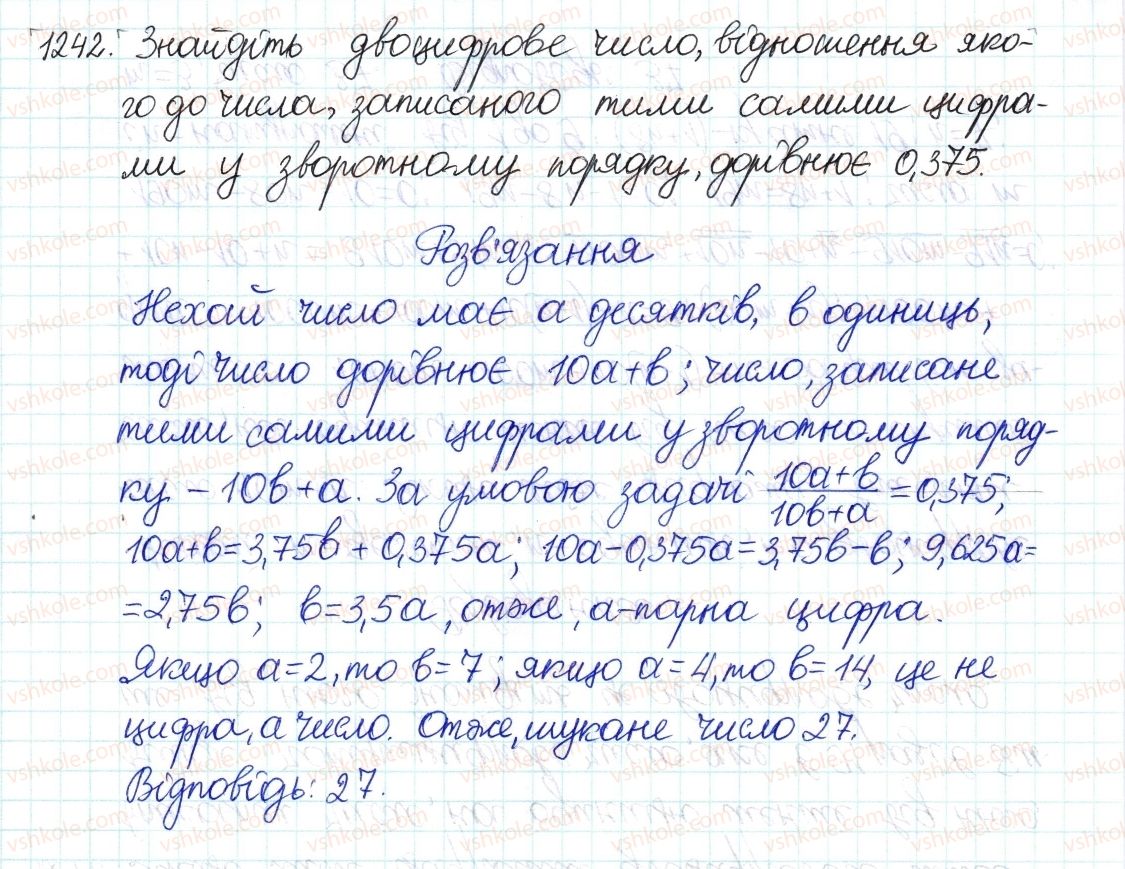 1242. Знайдіть двоцифрове число, відношення яко-
го до числа, записаного тими самими цифра-
ми у зворотному порядку, дорівнює 0,375.
Розв'язання
Нехай число має а десятків, в одиниць,
тоді число дорівнює 10а+в; число, записане
тими самими цифрами у зворотному поряд-
ку - 10в+а. За умовою задачі (10а+в)/(10в+а) = 0,375;
10а+в=3,75в + 0,375а; 10а-0,375а=3,75в-в; 9,625а=
=2,75в; в=3,5а, отже, а-парна цифра.
Якщо а=2, то в=7; якщо а=4, то в=14, це не
цифра, а число. Отже, шукане число 27.
Відповідь: 27.